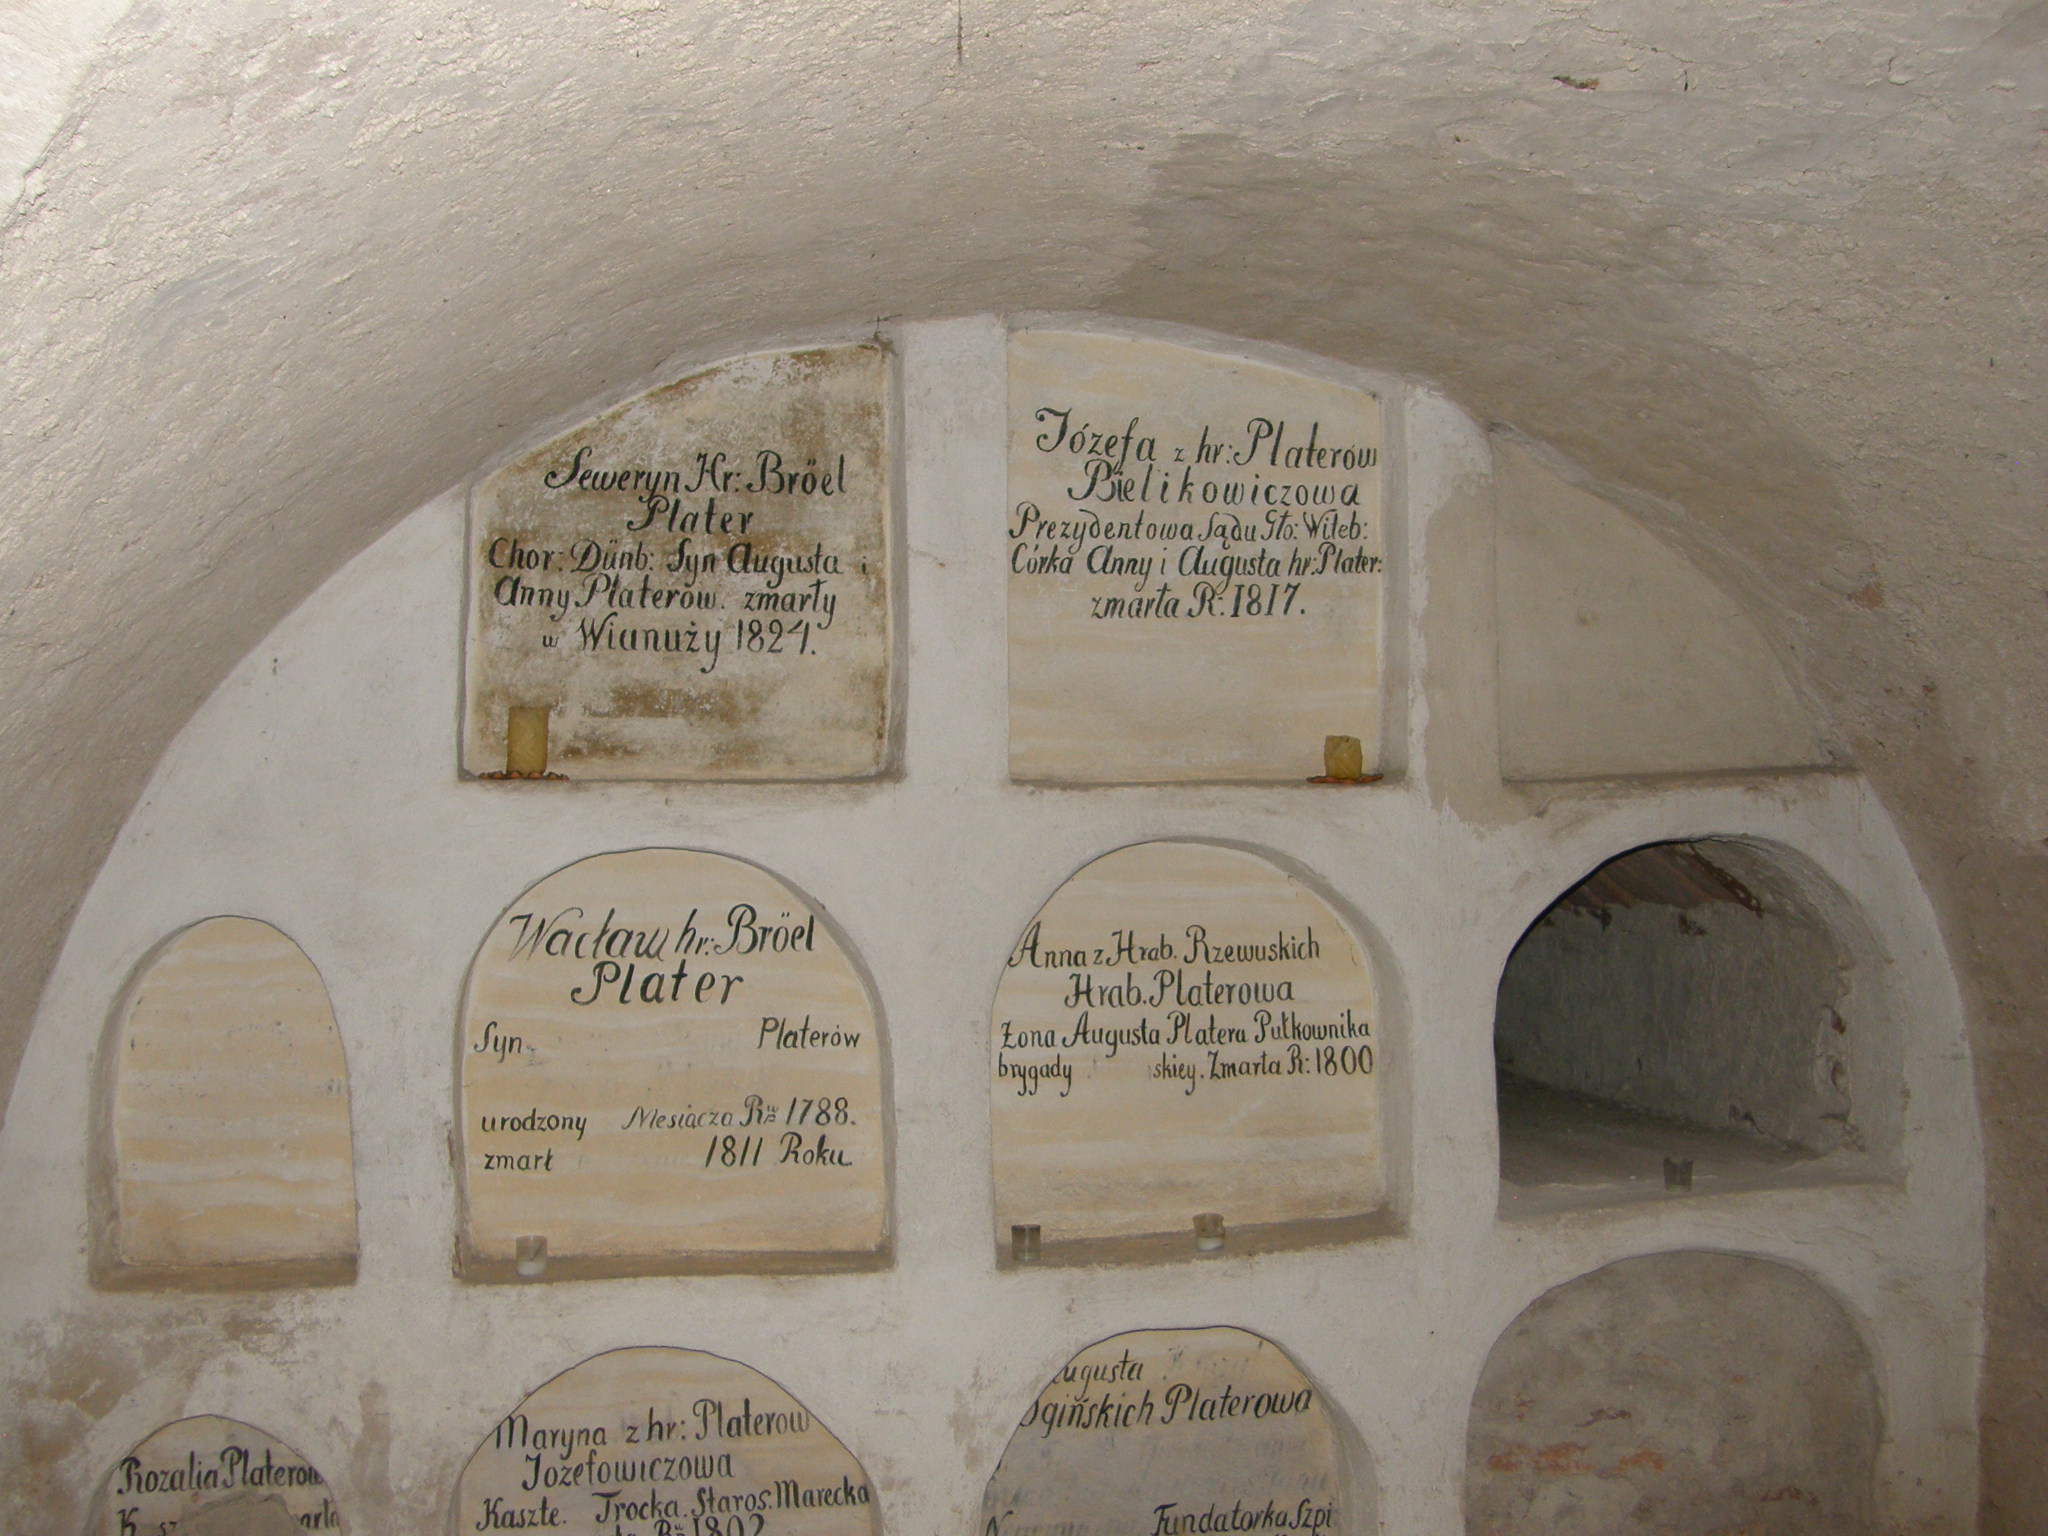 Seweryn Hr: Bröel
Plater
Chor: Dünb: Syn Augusta i
Anny Platerów. zmarły
w Wianuży 1824.
Józefa z hr: Platerów
Bielikowiczowa
Prezydentowa Sądu Gło: Witeb:
Córka Anny i Augusta hr: Plater:
zmarła R: 1817.
Wacław hr: Bröel
Plater
Syn Platerów
urodzony Mesiącza 1788.
zmarł 1811 Roku
Anna z Hrab. Rzewuskich
Hrab. Platerowa
Żona Augusta Platera Pułkownika
brygady skiey. Zmarła R: 1800
Rozalia Platerow
Maryna z hr: Platerow
Jozefowiczowa
Kaszte. Trocka. Staros: Marecka
1802
ugusta
gińskich Platerowa
Fundatorka Szpi